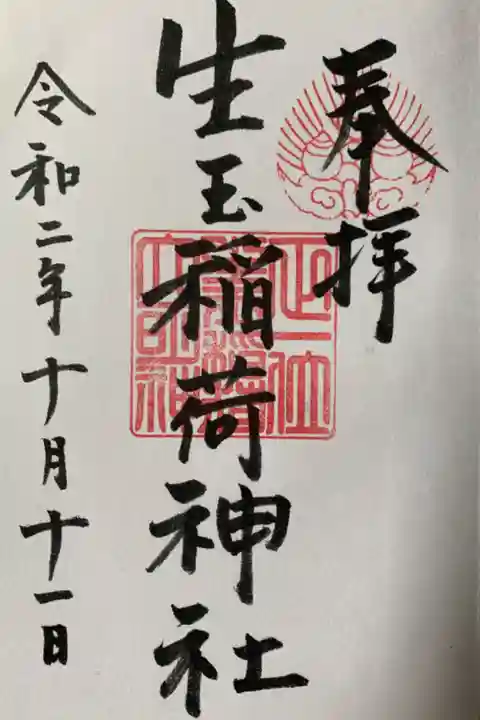 奉拝
生玉稲荷神社
令和二年十月十一日
正一位